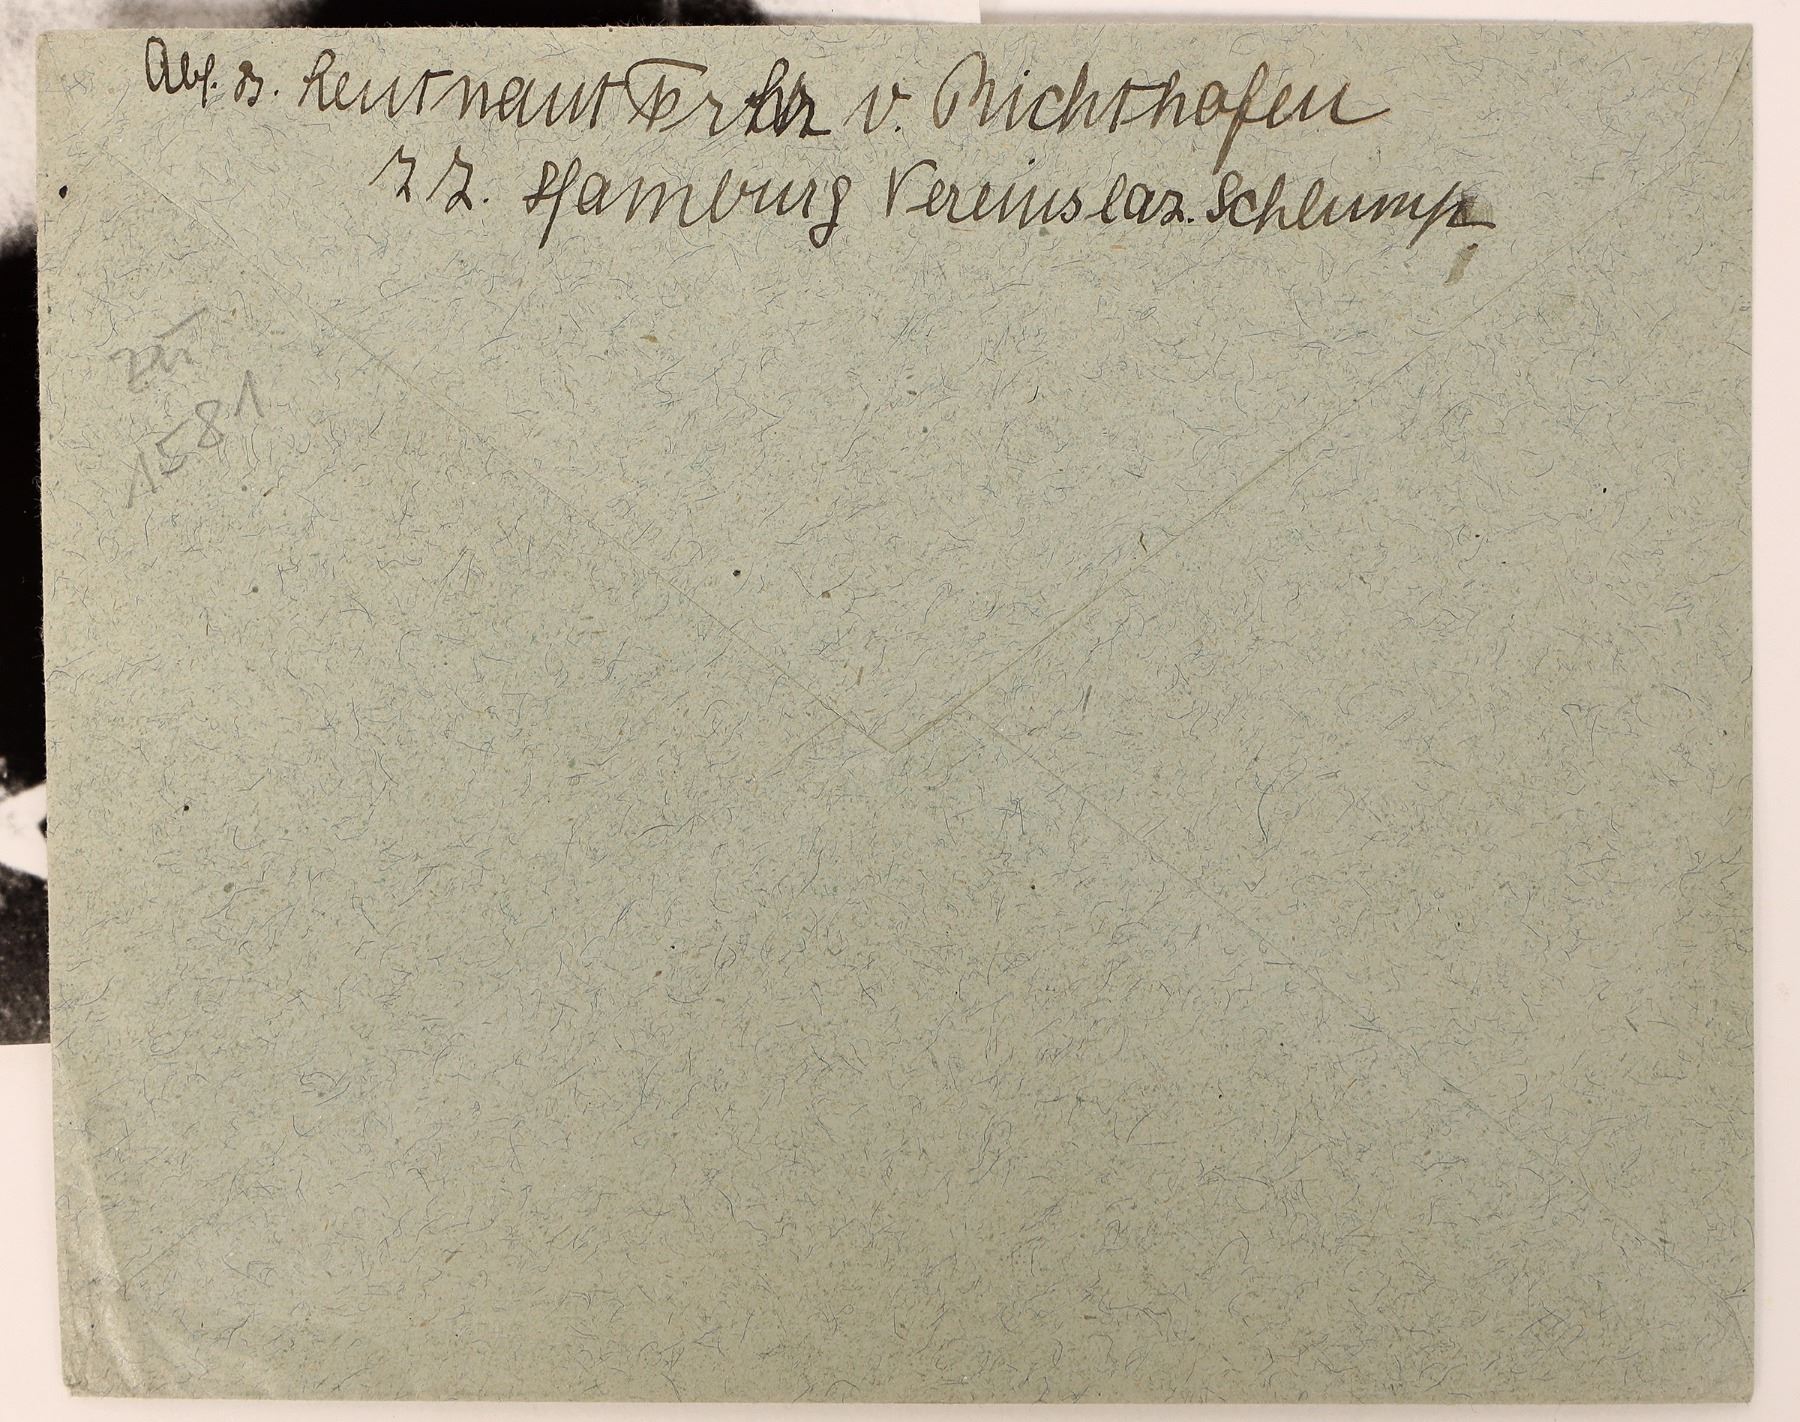 Abs. Leutnant Frhr v. Richthofen
z Z. Hamburg Vereinslaz. Schlump
zu
1581